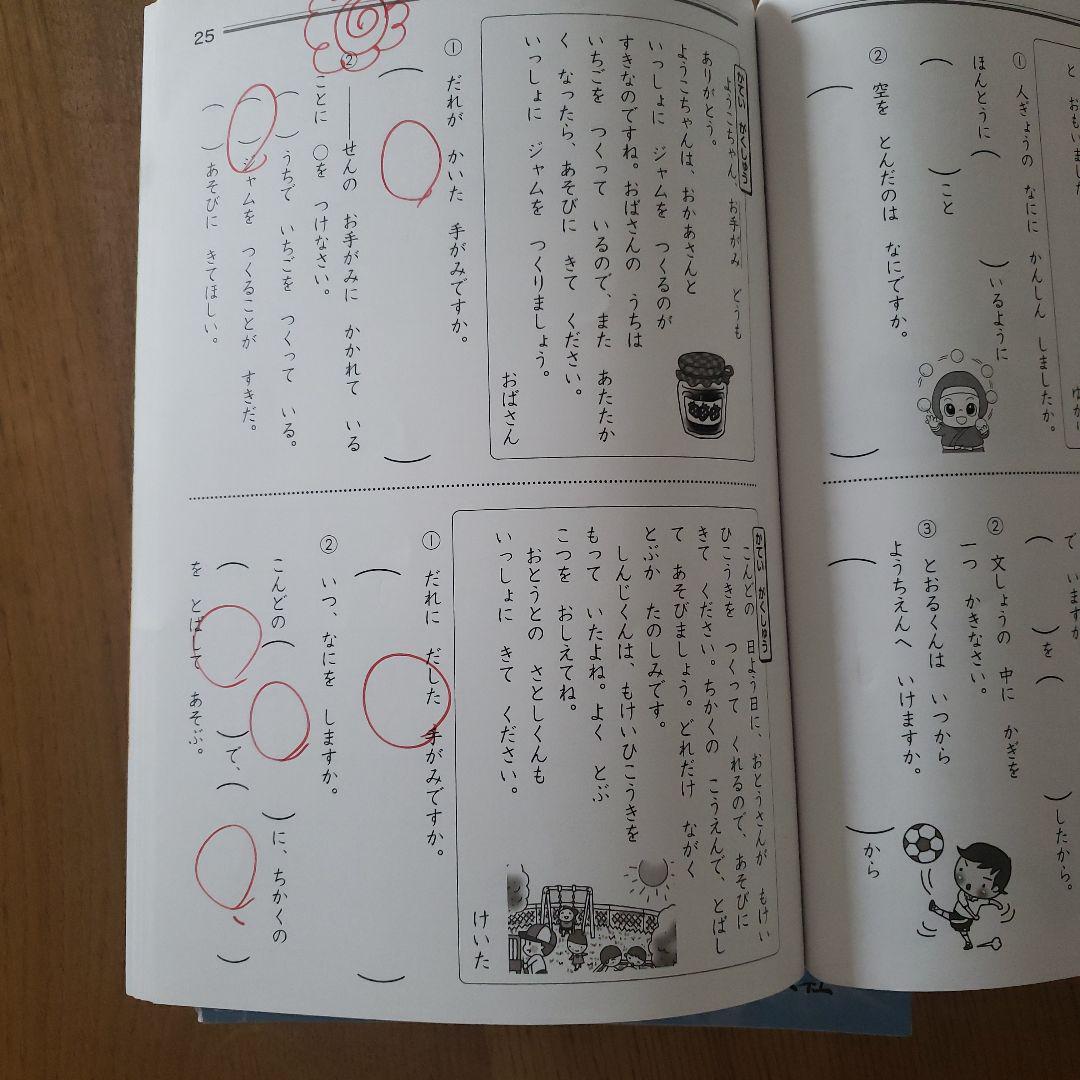 と おもいました
① 人ぎょうの なにに かんしん しましたか。
ほんとうに
( )こと
( )いるように
② 空を とんだのは なにですか。
( )
で います
( )を
( )したから。
② 文しょうの 中に かぎを
一つ かきなさい。
③ とおるくんは いつから
ようちえんへ いけますか。
( )から
25
かてい がくしゅう
ようこちゃん、お手がみ どうも
ありがとう。
ようこちゃんは、おかあさんと
いっしょに ジャムを つくるのが
すきなのですね。おばさんの うちは
いちごを つくって いるので、また あたたか
く なったら、あそびに きて ください。
いっしょに ジャムを つくりましょう。
おばさん
① だれが かいた 手がみですか。
( )
② ――せんの お手がみに かかれて いる
ことに ○を つけなさい。
( )うちで いちごを つくって いる。
( )ジャムを つくることが すきだ。
( )あそびに きてほしい。
かてい がくしゅう
こんどの 日よう日に、おとうさんが もけい
ひこうきを つくって くれるので、あそびに
きて ください。ちかくの こうえんで、とばし
て あそびましょう。どれだけ ながく
とぶか たのしみです。
しんじくんは、もけいひこうきを
もって いたよね。よく とぶ
こつを おしえてね。
おとうとの さとしくんも
いっしょに きて ください。
けいた
① だれに だした 手がみですか。
( )
② いつ、なにを しますか。
こんどの( )に、ちかくの
( )で、( )
を とばして あそぶ。